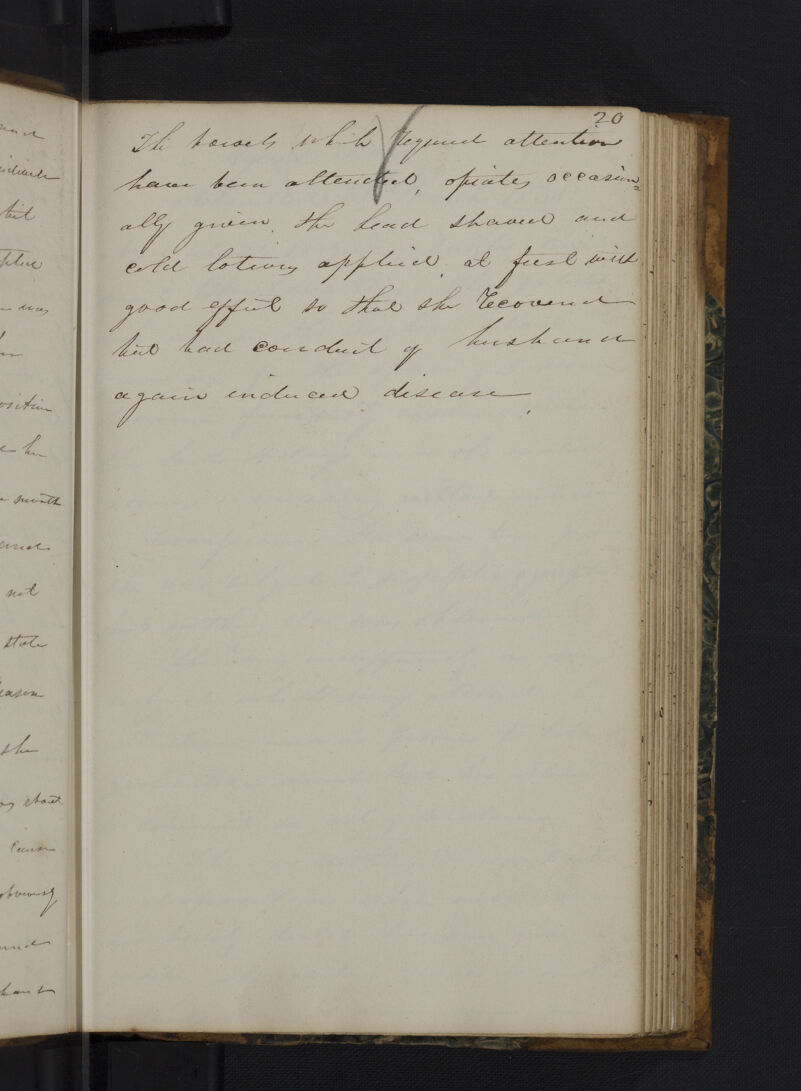 20
The bowels which required attention
have been attended, opiates occasion=
ally given, the head shaved and
cold lotions applied, at first with
good effect so that she recovered
but bad conduct of husband
again induced disease
but
was
not
state
she